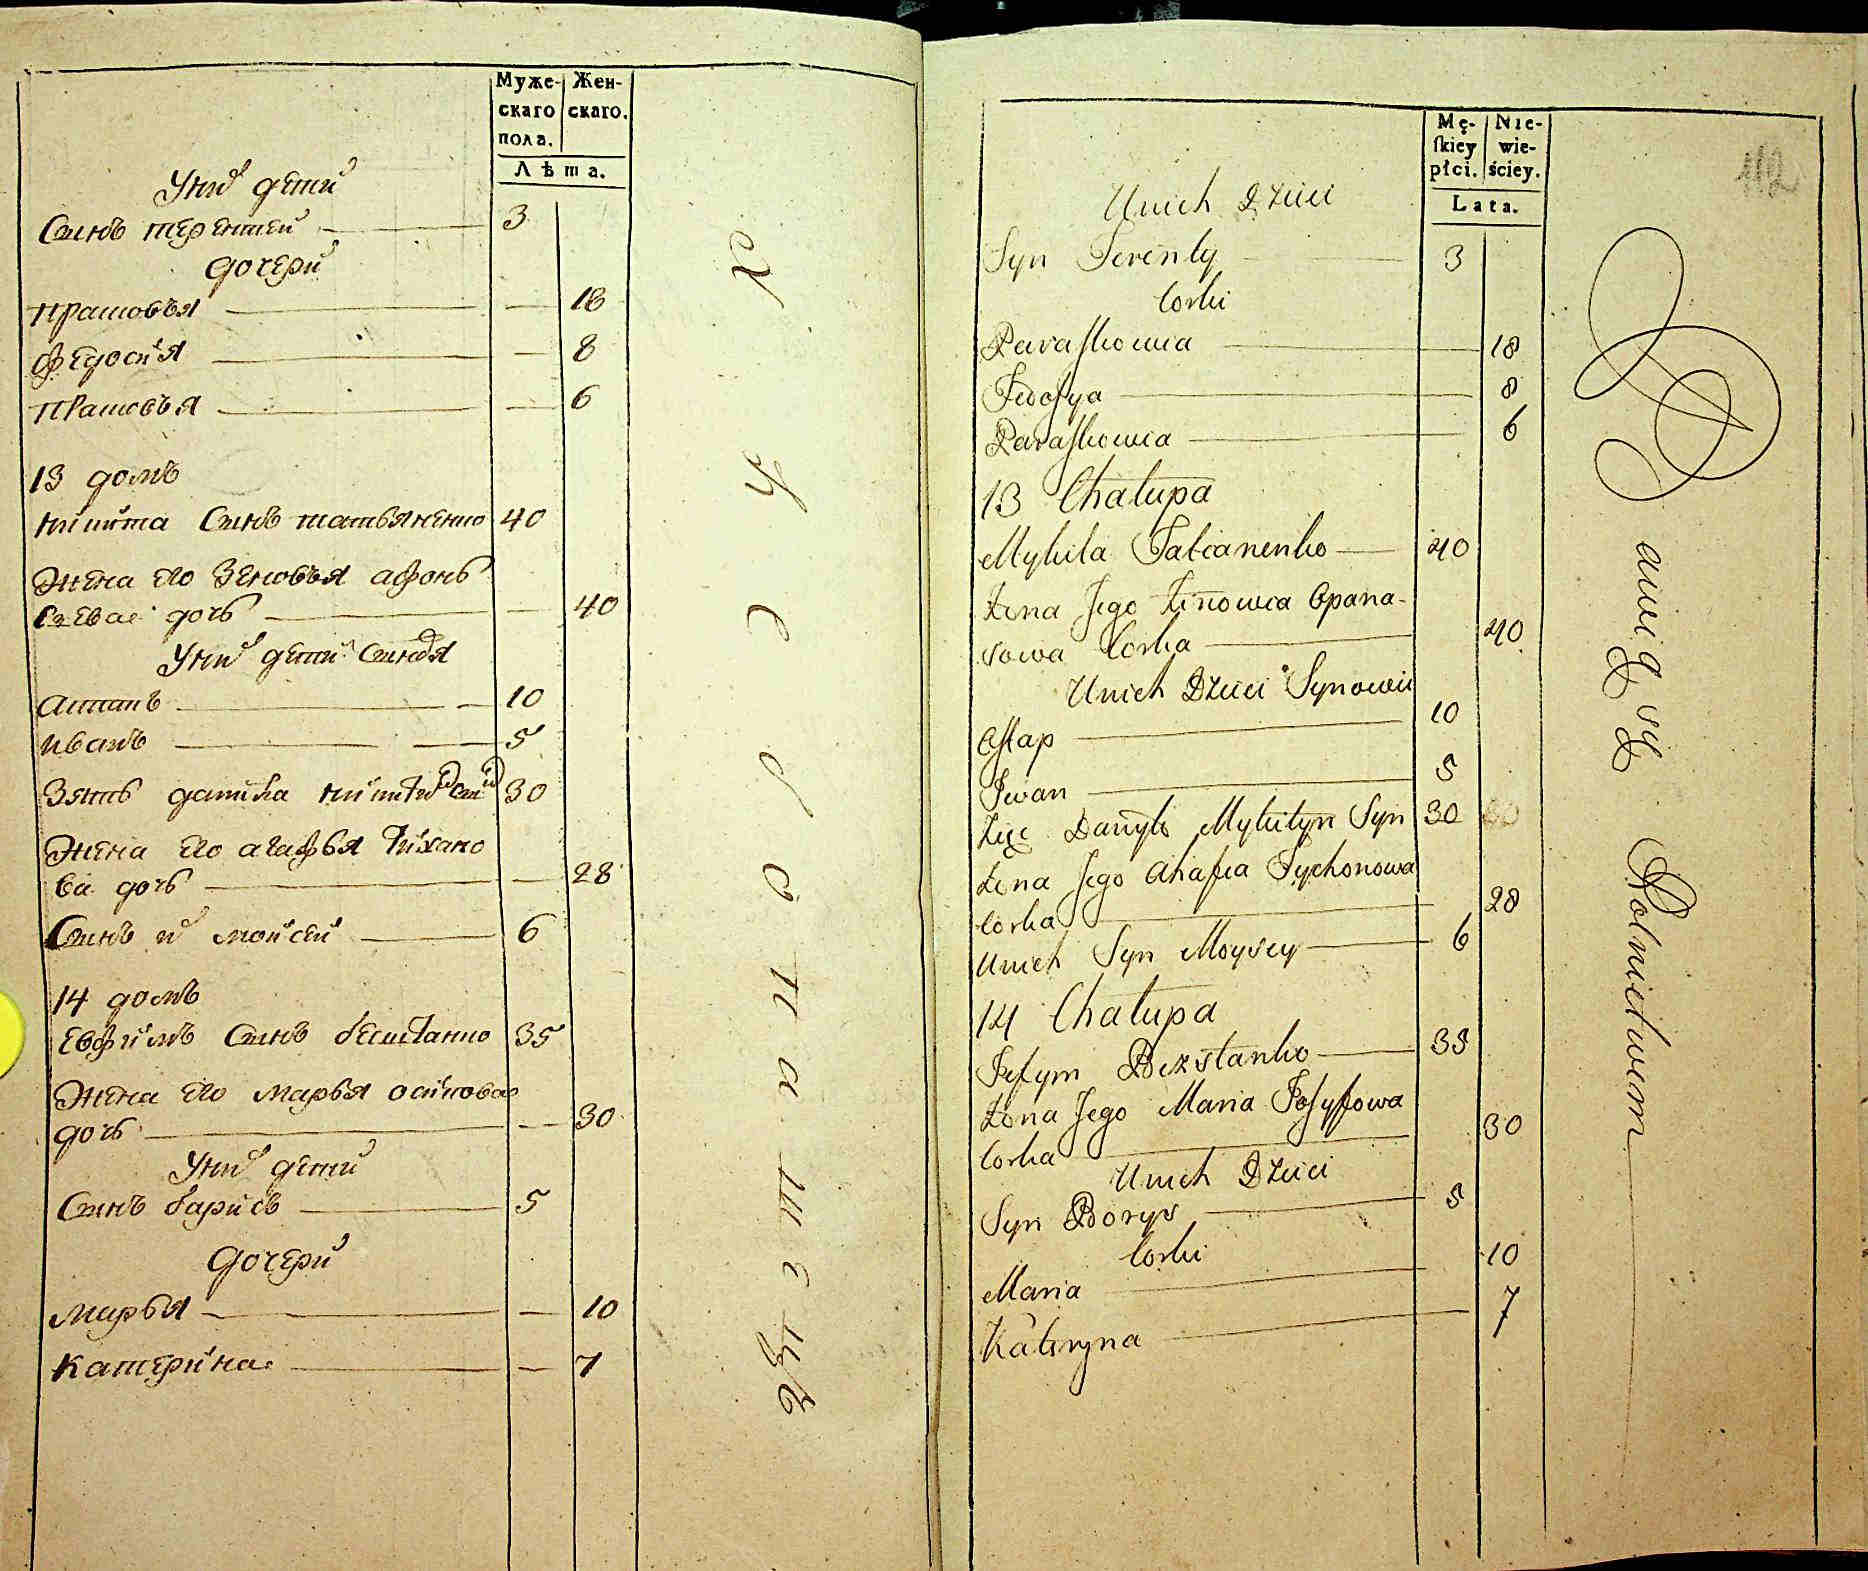 Муже-
скаго
пола.
Жен-
скаго.
Лѣта.
У них дети
Синъ терентей 3
дочери
Прасковья 18
Федосия 8
Прасковья 6
13 домъ
Никита Синъ татьяненко 40
Жена его Зеновья афонъ
сиева дочь 40
У них дети синовя
астапъ 10
иванъ 5
Зять данила никитин син 30
Жена его агафья Тихано
ва дочь 28
Синъ их моисей 6
14 домъ
евфимъ Синъ бесстанко 35
Жена его марья осипова
дочь 30
У них дети
Синъ барисъ 5
дочери
марья 10
катерина 7
Mę-
ſkiey
płci.
Nie-
wie-
ściey.
Lata.
112
Unich Dzieci
Syn Terenty 3
Corki
Paraſkowia 18
Fedoſya 8
Paraſkowia 6
13 Chałupa
Mykita Tatianenko 40
Żona Jego Zinowia Opana-
sowa Corka 40
Unich Dzieci Synowie
Oſtap 10
Iwan 5
Zięć Danyło Mykityn Syn 30
Żona Jego Ahafia Tychonowa
Corka 28
Unich Syn Moysey 6
14 Chałupa
Jefym Bezstanko 35
Żona Jego Maria Joſyfowa
Corka 30
Unich Dzieci
Syn Borys 5
Corki
Maria 10
Kateryna 7
Bawią się Rolnictwem